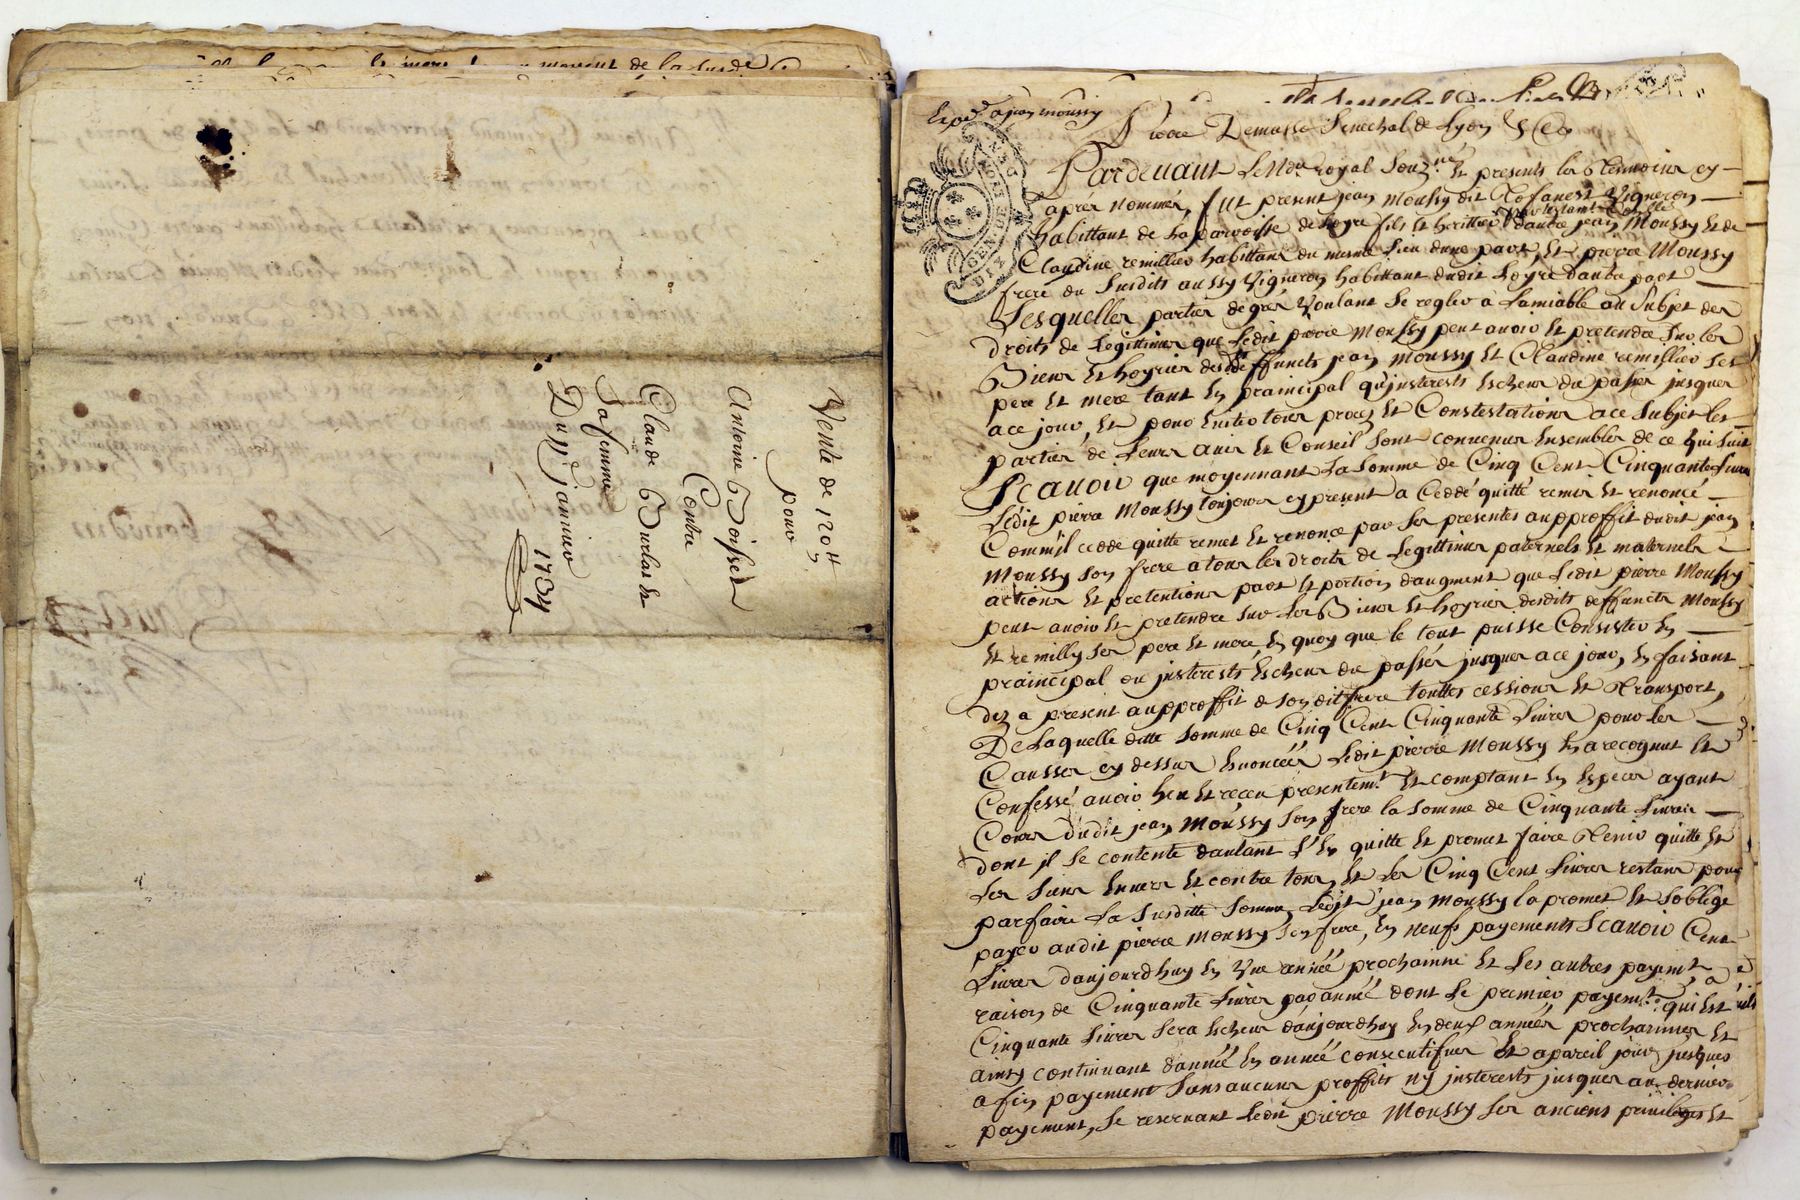 Vente de 120tt
pour
Antoine Boisset
Contre
Claude Burlat et
Sa femme
Du 17e janvier
1734
Expe a jean moussy
Pierre Demasso Senechal de Lyon
Pardevant Le Nore royal Souzne et presents les Temoins cy
apres nommés, fut present jean Moussy dit Vigneron
habittant de la parroisse de Loyre fils et herittier par testamt dautre jean Moussy et de
Claudine remillier habittans du mesme Lieu dune part, et pierre Moussy
frere du Susdits aussy Vigneron habittant dudit Loyre dautre part
Lesquelles parties de gres Voulant Se regler à Lamiable au Subjet des
droits de Legittimes que Ledit pierre Moussy peut avoir et pretendre Sur les
Biens et hoyries desd deffuncts jean Moussy et Claudine remillier Ses
pere et mere tant en praincipal qu'justerests escheus du passés jusques
a ce jour, et pour Eviter tous proces et Constestations a ce Subjet les
parties de Leurs avis et Conseil Sont convenus Ensembles de ce qui Suit
Scavoir que moyennant La Somme de Cinq Cent Cinquante Livres
Ledit pierre Moussy toujours cy present a Ceddé quitté remis et renoncé
Comm'il cede quitte remet et renonce par Ses presentes au proffit dudit jean
Moussy Son frere a tous les droits de Legittimes paternels et maternels
actions et pretentions part et portion daugment que Ledit pierre Moussy
peut avoir et pretendre sur Les Biens et hoyries desdits deffuncts Moussy
et remilly Ses pere et mere, En quoy que le tout puisse Consister En
praincipal ou justerests Escheus du passés jusques a ce jour, En faisant
dez a present au proffit de Son dit frere touttes cessions et Transport,
De Laquelle ditte Somme de Cinq Cent Cinquante Livres pour les
Causses cy dessus Enoncéés Ledit pierre Moussy En a recognut et
Confessé avoir heu et receu presentemt et comptant En Especes ayant
Cours dudit jean Moussy Son frere la Somme de Cinquante Livres
dont jl Se contente dautant L'En quitte et promet faire Tenir quitte et
Les Siens Envers et contre tous, et les Cinq Cent Livres restans pour
parfaire La Susditte Somme, Ledit jean Moussy la promet et Soblige
payer audit pierre Moussy Son frere, En neufs payements Scavoir Cent
Livres daujourdhuy En Une année prochainne et Les autres payemt a
raison de Cinquante Livres par année dont Le premier payemt qui Est
Cinquante Livres Sera Escheus daujourdhuy En deux années prochainnes et
ainsy continuant dannée En année consecutifves et a pareil jour jusques
a fin payement Sans aucuns proffits ny justerests jusques au dernier
payement, Se reservant Ledit pierre Moussy Ses anciens privileges et